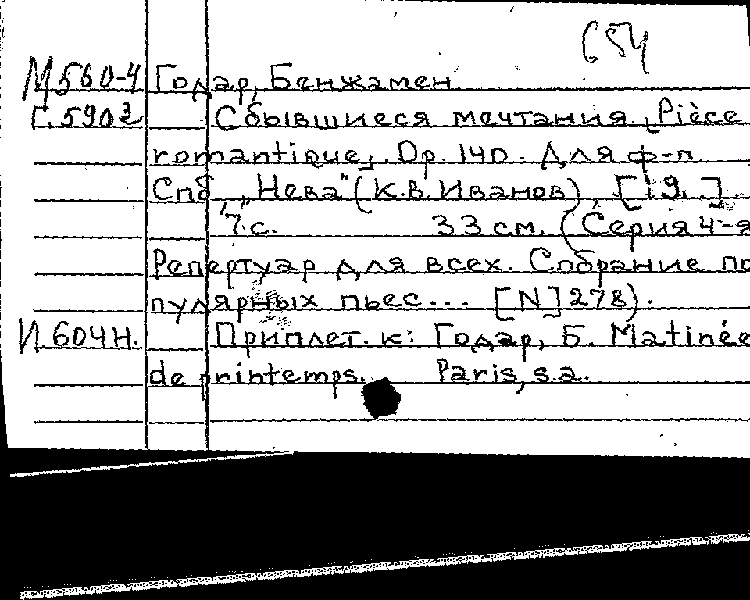 654
М560-4 Годар, Бенжамен
Г.5902 Сбывшиеся мечтания. [Pièce
romantique]. Op. 140. Для ф-п.
Спб, „Нева" (К.В. Иванов), [19..]
7 с. 33 см. (Серия 4-я
Репертуар для всех. Собрание по-
пулярных пьес... [N] 278).
И.604н. Приплет. к: Годар, Б. Matinée
de printemps. Paris, s.a.